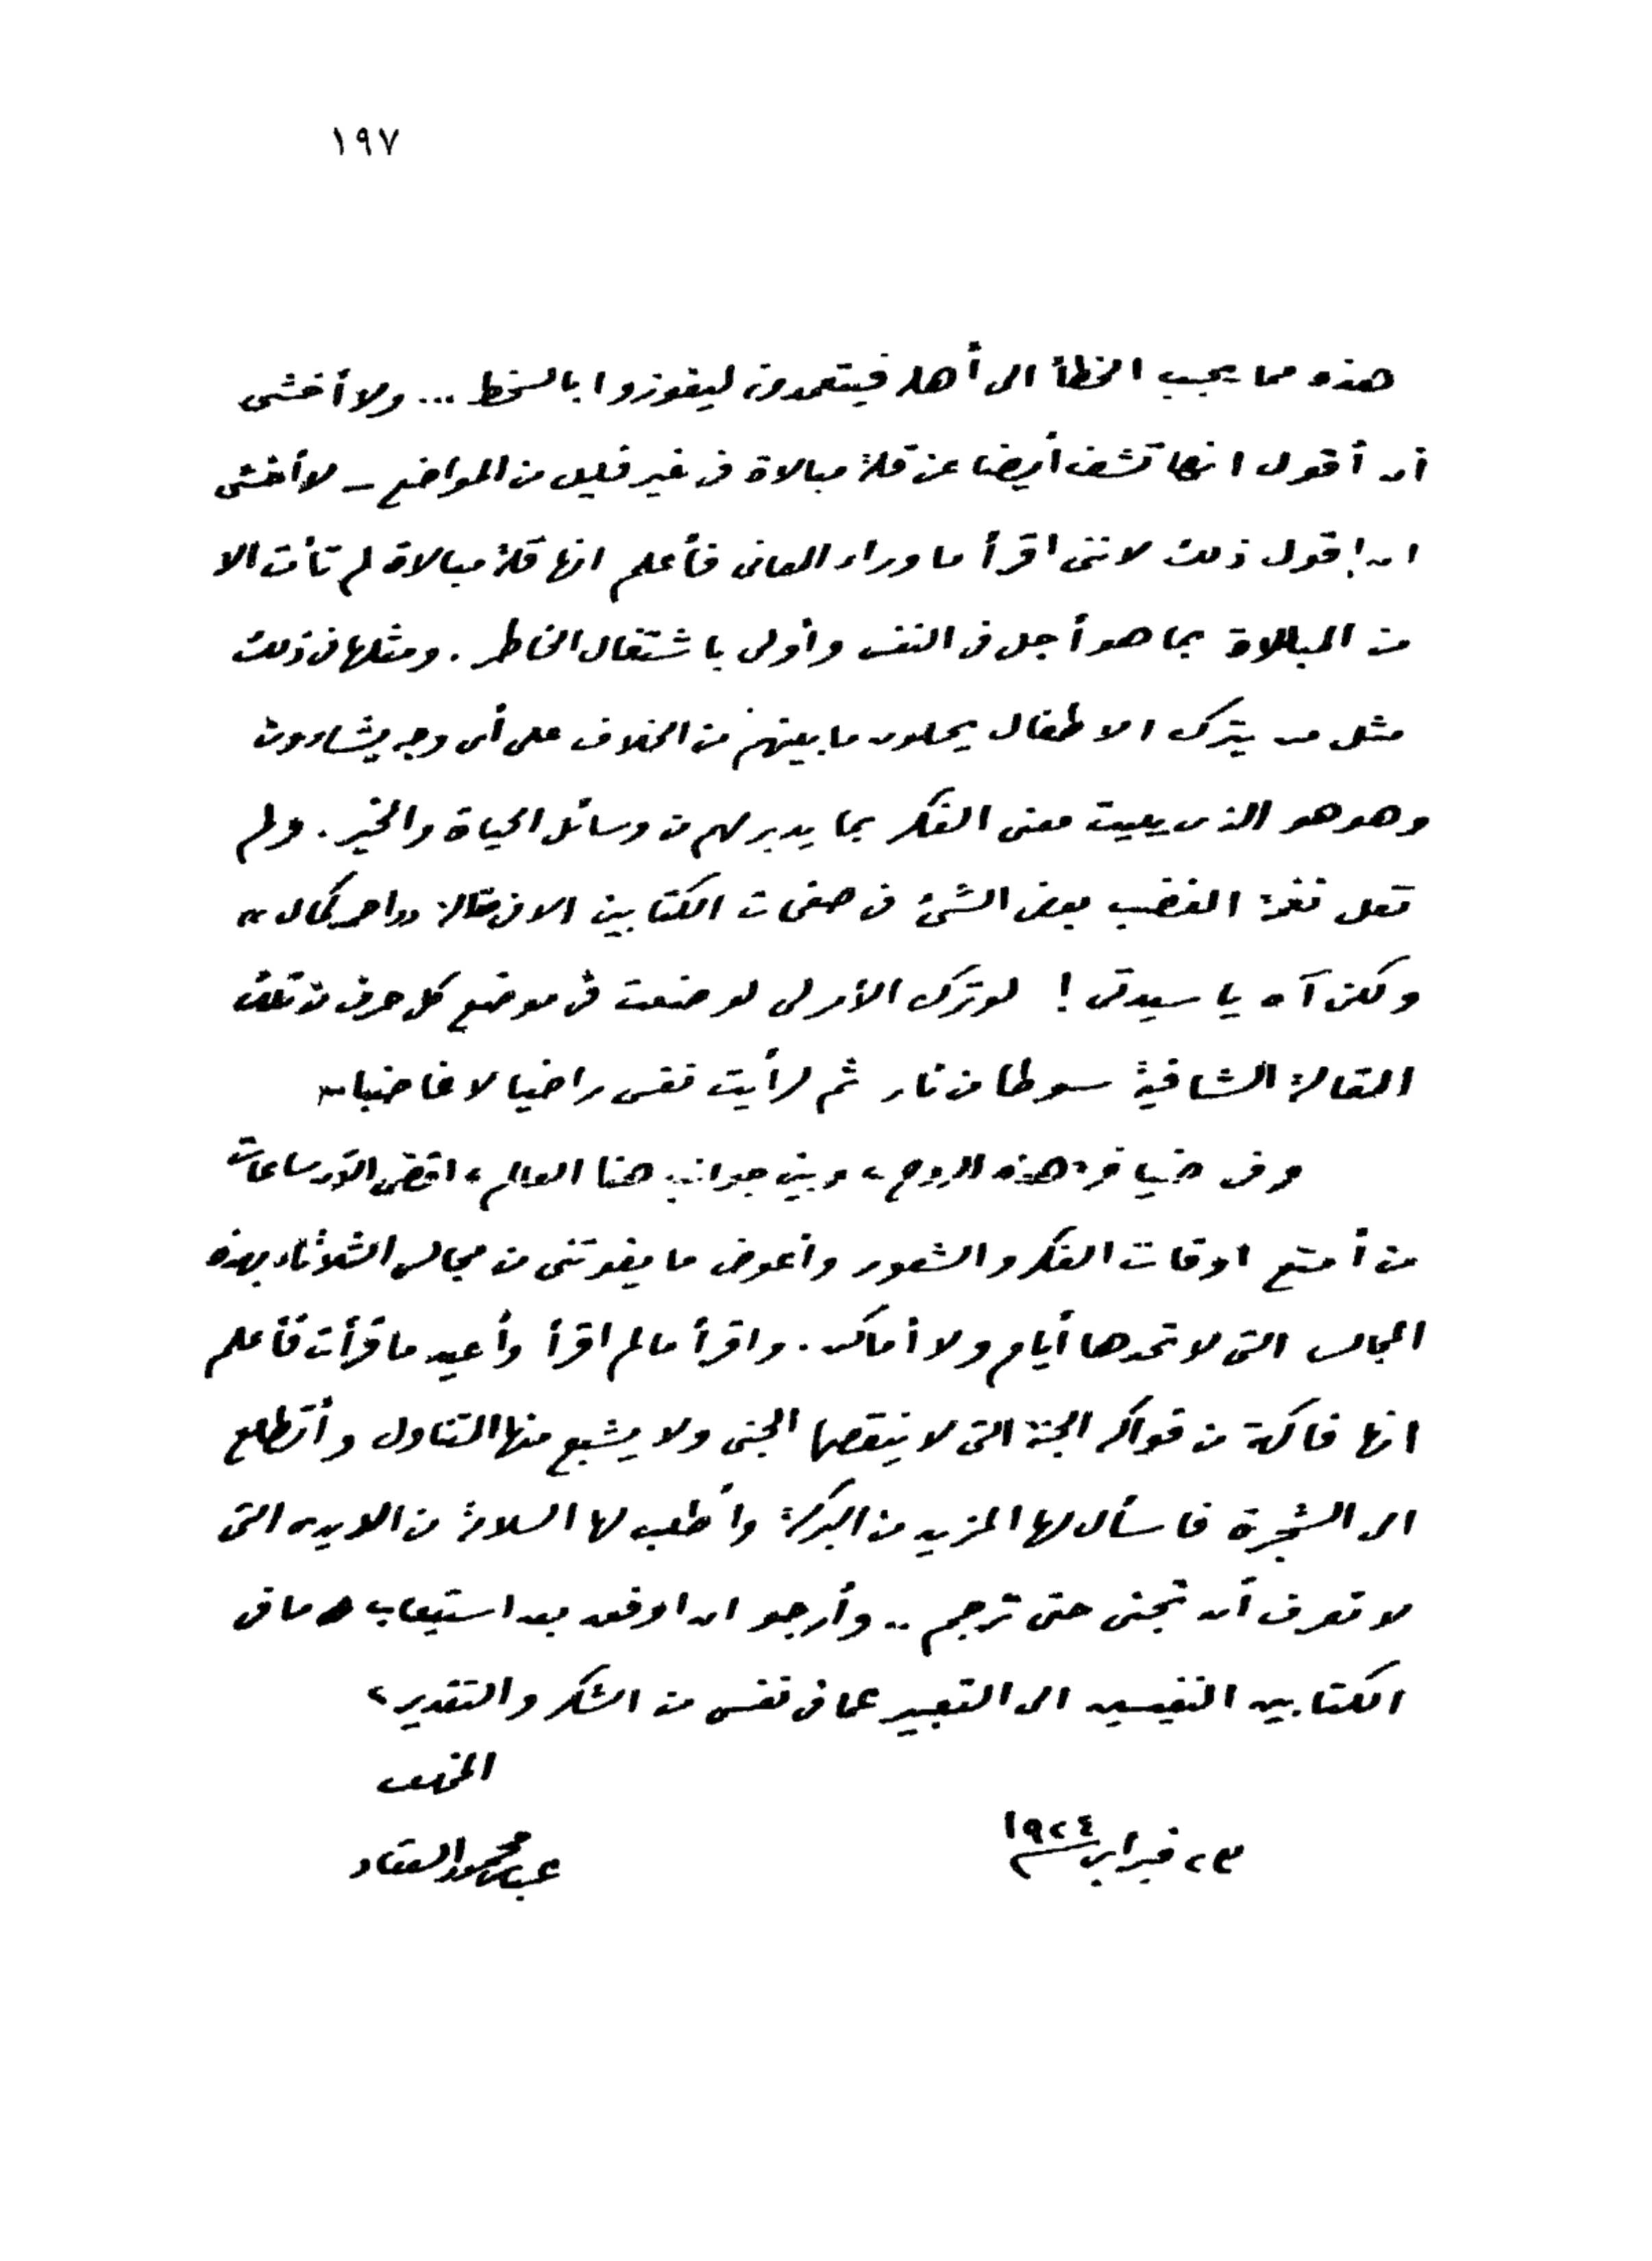 ١٩٧
هذه مما يحبب الخطأ الى أهله فيتعمدونه ليفوزوا بالسخط ... ولا أخشى
أن أقول انها تشف أيضا عن قلة مبالاة فى غير قليل من المواضع - لا أخشى
ان أقول ذلك لاننى اقرأ ما وراء المعانى فأعلم انها قلة مبالاة لم تأت الا
من المبالاة بما هو أجل فى النفس وأولى باشتغال الخاطر . ومثلها فى ذلك
مثل من يترك الاطفال يحلون ما بينهم من الخلاف على أى وجه يشاءون
وهو هو الذى يعنت معنى الفكر بما يدبر لهم من وسائل الحياة والخير . ولم
تعل نغمة الغضب بعض الشئ فى صفحات الكتابين الا فى مقالة «احمد كمال»
ولكن آه يا سيدتى ! لو ترك الأمر لى لوضعت فى موضع كل حرف من تلك
المقالة الشافية سوطا من نار ثم لرأيت نفسى راضيا لا غاضبا ..
وفى ضيافة هذه الروح ، وبين جوانب هذا العالم ، اقضى الآن ساعات
من أمتع اوقات الفكر والشعور وأعوض ما يفوتنى من مجالس الثلاثاء بهذه
المجالس التى لا تحدها أيام ولا أماكن . واقرأ ما لم اقرأ وأعيد ما قرأت فأعلم
انها فاكهة من فواكه الجنة التى لا ينقصها الجنى ولا يشبع منها التناول وأتطلع
الى الشجرة فاسأل لها المزيد من البركة وأطلب لها السلامة من الايدى التى
لا تعرف أن تجنى حتى ترجم .. وأرجو ان اوفق بعد استيعاب ما فى
الكتابين النفيسين الى التعبير عما فى نفسى من الشكر والتقدير ،
المخلص
عباس محمود العقاد
٢٣ فبراير سنة ١٩٢٤